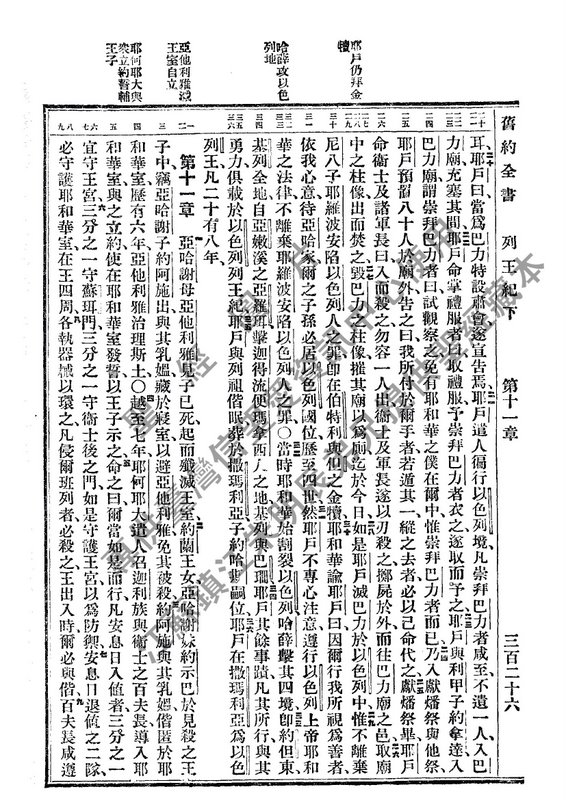 耶戶仍拜金犢
哈薛攻以色列地
亞他利雅滅王室自立
耶何耶大與衆立約誓輔王子
舊約全書 列王紀下 第十一章 三百二十六
耳、耶戶曰、當爲巴力特設肅會、遂宣告焉、耶戶遣人徧行以色列境、凡崇拜巴力者咸至、不遺一人、入巴
力廟、充塞其間、耶戶命掌禮服者曰、取禮服予崇拜巴力者衣之、遂取而予之、耶戶與利甲子約拿達入
巴力廟、謂崇拜巴力者曰、試觀察之、免有耶和華之僕在爾中、惟崇拜巴力者而已、乃入獻燔祭與他祭、
耶戶預備八十人於廟外、告之曰、我所付於爾手者、若遁其一、縱之去者、必以己命代之、獻燔祭畢、耶戶
命衛士及諸軍長曰、入而殺之、勿容一人出、衛士及軍長遂以刃殺之、擲屍於外、而往巴力廟之邑、取廟
中之柱像出而焚之、毀巴力之柱像、摧其廟以爲廁、迄於今日、如是耶戶滅巴力於以色列中、惟不離棄
尼八子耶羅波安陷以色列人之罪、卽在伯特利與但之金犢、耶和華諭耶戶曰、因爾行我所視爲善者、
依我心意待亞哈家、爾之子孫、必居以色列國位、歷至四世、然耶戶不專心注意遵行以色列上帝耶和
華之法律、不離棄耶羅波安陷以色列人之罪、○當時耶和華始割裂以色列、哈薛擊其四境、卽約但東
基列全地、自亞嫩溪之亞羅珥、擊迦得流便瑪拿西人之地、基列與巴珊、耶戶其餘事蹟、凡其所行、與其
勇力、俱載於以色列列王紀、耶戶與列祖偕眠、葬於撒瑪利亞、子約哈斯嗣位、耶戶在撒瑪利亞、爲以色
列王、凡二十有八年、
第十一章 亞哈謝母亞他利雅、見子已死、起而殲滅王室、約蘭王女、亞哈謝妹約示巴、於見殺之王
子中、竊亞哈謝子約阿施出、與其乳媼藏於寢室、以避亞他利雅、免其被殺、約阿施與其乳媼、偕匿於耶
和華室、歷有六年、亞他利雅治理斯土、○越至七年、耶何耶大遣人召迦利族與衛士之百夫長、導入耶
和華室、與之立約、使在耶和華室發誓、以王子示之、命之曰、爾當如是而行、凡安息日入值者、三分之一
宜守王宮、三分之一守蘇珥門、三分之一守衛士後之門、如是守護王宮、以爲防禦、安息日退値之二隊、
必守護耶和華室、在王四周、各執器械以環之、凡侵爾班列者必殺之、王出入時、爾必與偕、百夫長咸遵